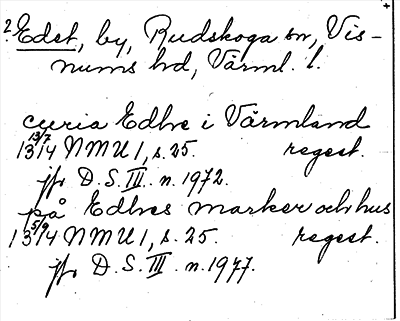 ? Edet, by, Rudskoga sn, Vis-
nums hd, Värml. l.
curia Edhve i Värmland
13 13/7 14 NMU 1, s. 25. regest.
jfr D. S. III. n. 1972.
på Edhves marker och hus
13 5/9 14 NMU 1, s. 25. regest.
jfr D. S. III. n. 1977.